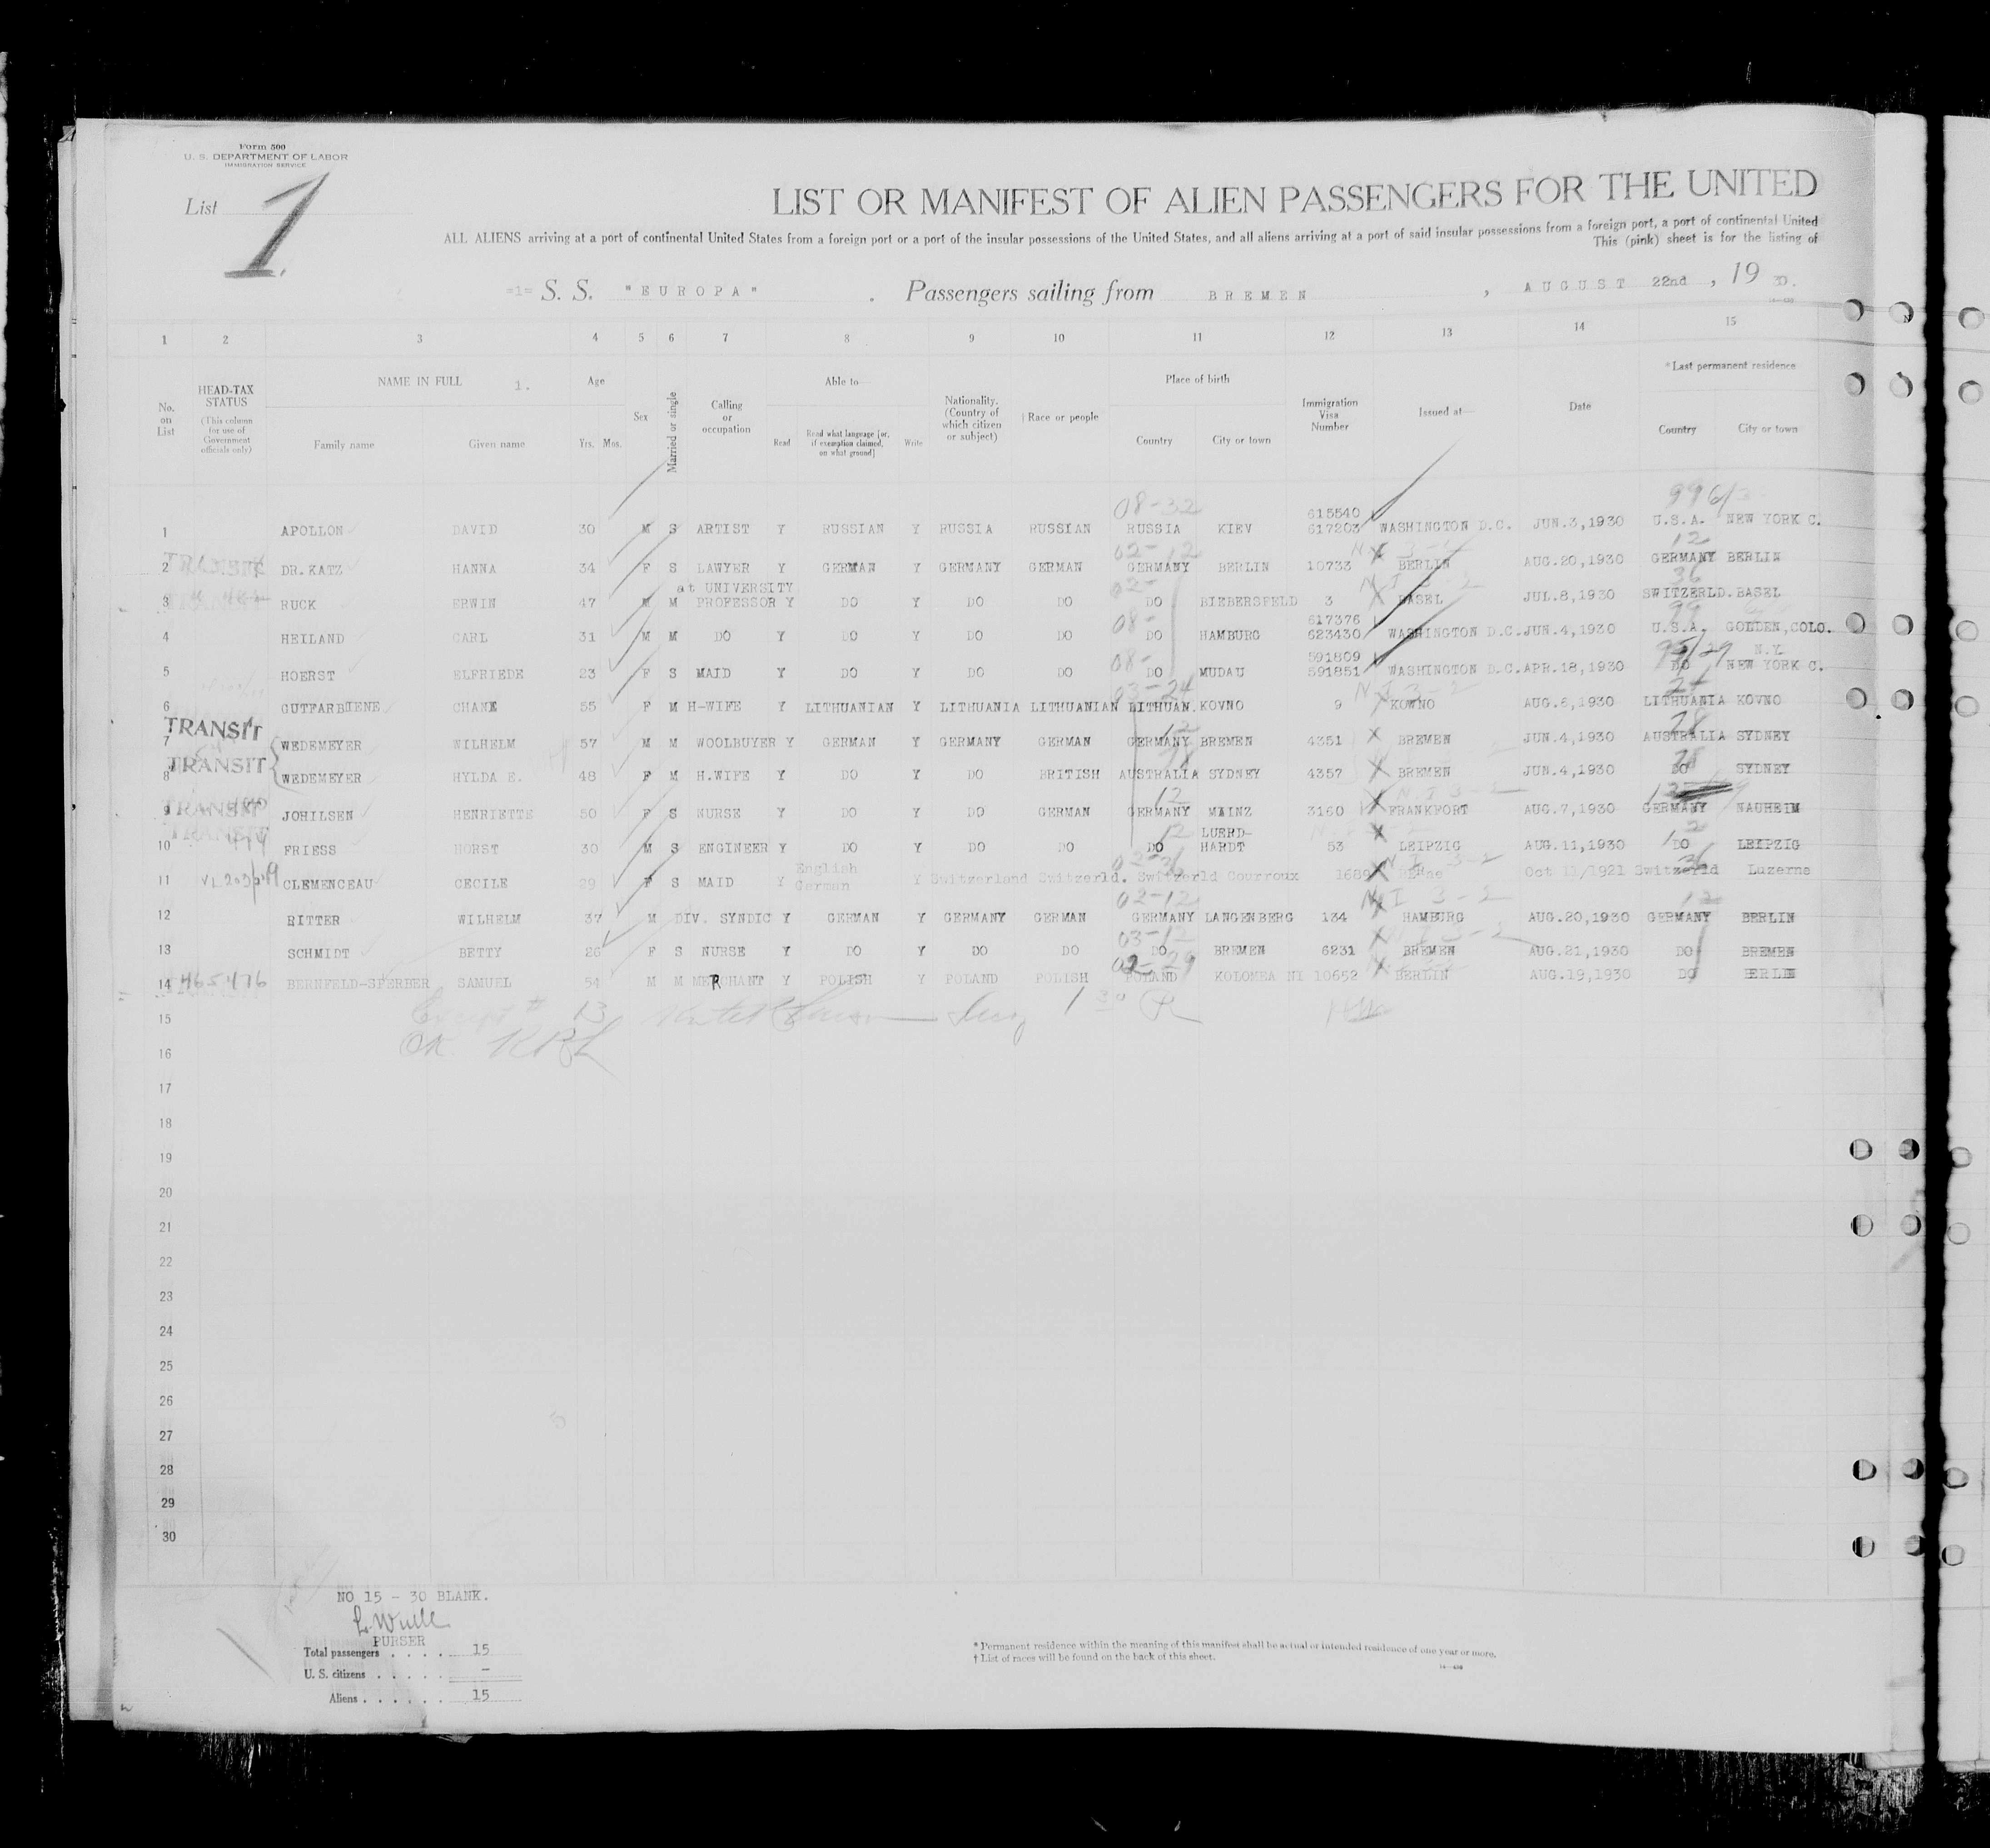 Form 500
U. S. DEPARTMENT OF LABOR
IMMIGRATION SERVICE
List 1
LIST OR MANIFEST OF ALIEN PASSENGERS FOR THE UNITED
ALL ALIENS arriving at a port of continental United States from a foreign port or a port of the insular possessions of the United States, and all aliens arriving at a port of said insular possessions from a foreign port, a port of continental United
This (pink) sheet is for the listing of
=1= S. S. "EUROPA" . Passengers sailing from BREMEN , AUGUST 22nd , 19 30.
1 2 3 4 5 6 7 8 9 10 11 12 13 14 15
No. on List
HEAD-TAX STATUS (This column for use of Government officials only)
NAME IN FULL 1.
Family name Given name
Age Yrs. Mos.
Sex
Married or single
Calling or occupation
Able to—
Read Read what language [or, if exemption claimed, on what ground] Write
Nationality. (Country of which citizen or subject)
† Race or people
Place of birth
Country City or town
Immigration Visa Number
Issued at—
Date
* Last permanent residence
Country City or town
08-32 615540 99
1 APOLLON DAVID 30 M S ARTIST Y RUSSIAN Y RUSSIA RUSSIAN RUSSIA KIEV 617203 WASHINGTON D.C. JUN.3,1930 U.S.A. NEW YORK C.
TRANSIT 02-12 N.I 3-2 12
2 DR.KATZ HANNA 34 F S LAWYER Y GERMAN Y GERMANY GERMAN GERMANY BERLIN 10733 BERLIN AUG.20,1930 GERMANY BERLIN
at UNIVERSITY 02- N.I 3-2 36
3 RUCK ERWIN 47 M M PROFESSOR Y DO Y DO DO DO BIEBERSFELD 3 BASEL JUL.8,1930 SWITZERLD. BASEL
08- 617376 99
4 HEILAND CARL 31 M M DO Y DO Y DO DO DO HAMBURG 623430 WASHINGTON D.C. JUN.4,1930 U.S.A. GOLDEN,COLO.
08- 591809 N.Y.
5 HOERST ELFRIEDE 23 F S MAID Y DO Y DO DO DO MUDAU 591851 WASHINGTON D.C. APR.18,1930 DO NEW YORK C.
03-24 N.I 3-2 24
6 GUTFARBIENE CHANE 55 F M H-WIFE Y LITHUANIAN Y LITHUANIA LITHUANIAN LITHUAN. KOVNO 9 KOWNO AUG.6,1930 LITHUANIA KOVNO
TRANSIT 12 78
7 WEDEMEYER WILHELM 57 M M WOOLBUYER Y GERMAN Y GERMANY GERMAN GERMANY BREMEN 4351 BREMEN JUN.4,1930 AUSTRALIA SYDNEY
TRANSIT 78
8 WEDEMEYER HYLDA E. 48 F M H.WIFE Y DO Y DO BRITISH AUSTRALIA SYDNEY 4357 BREMEN JUN.4,1930 DO SYDNEY
TRANSIT 12 N.I 3-2 12
9 JOHILSEN HENRIETTE 50 F S NURSE Y DO Y DO GERMAN GERMANY MAINZ 3160 FRANKFORT AUG.7,1930 GERMANY NAUHEIM
TRANSIT 12 LUERD-
10 FRIESS HORST 30 M S ENGINEER Y DO Y DO DO DO HARDT 53 LEIPZIG AUG.11,1930 DO LEIPZIG
English N.I 3-2 36
11 CLEMENCEAU CECILE 29 F S MAID Y German Y Switzerland Switzerld. Switzerld Courroux 1689 Oct 11/1921 Switzerld Luzerne
02-12 N.I 3-2 12
12 RITTER WILHELM 37 M DIV. SYNDIC Y GERMAN Y GERMANY GERMAN GERMANY LANGENBERG 134 HAMBURG AUG.20,1930 GERMANY BERLIN
03-12 N.I 3-2
13 SCHMIDT BETTY 26 F S NURSE Y DO Y DO DO DO BREMEN 6231 BREMEN AUG.21,1930 DO BREMEN
02-29
14 465476 BERNFELD-SPERBER SAMUEL 54 M M MERCHANT Y POLISH Y POLAND POLISH POLAND KOLOMEA NI 10652 BERLIN AUG.19,1930 DO BERLIN
15 Except # 13 1 30 P
16 OK.
17
18
19
20
21
22
23
24
25
26
27
28
29
30
NO 15 - 30 BLANK.
L. Wulle
PURSER
Total passengers . . . . 15
U. S. citizens . . . . . . –
Aliens . . . . . . 15
* Permanent residence within the meaning of this manifest shall be actual or intended residence of one year or more.
† List of races will be found on the back of this sheet.